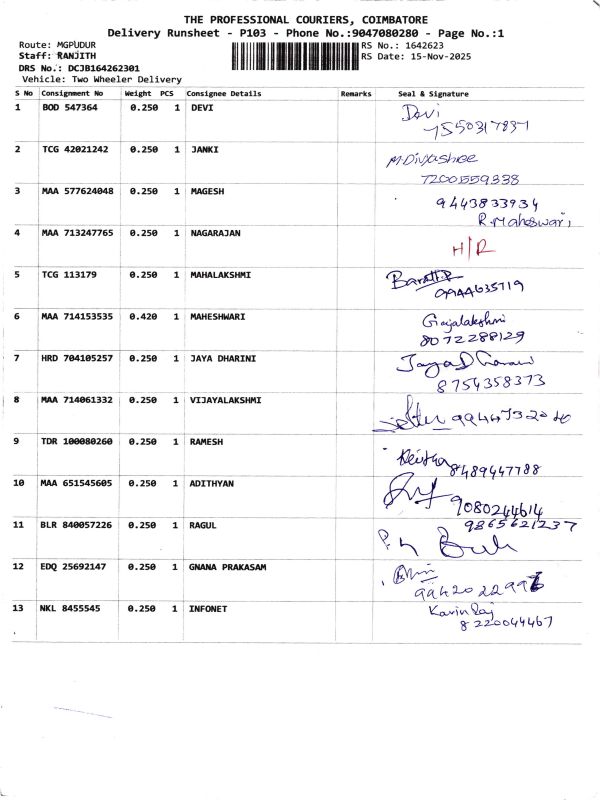 THE PROFESSIONAL COURIERS, COIMBATORE
Delivery Runsheet - P103 - Phone No.:9047080280 - Page No.:1
Route: MGPUDUR RS No.: 1642623
Staff: RANJITH RS Date: 15-Nov-2025
DRS No.: DCJB164262301
Vehicle: Two Wheeler Delivery
S No Consignment No Weight PCS Consignee Details Remarks Seal & Signature
1 BOD 547364 0.250 1 DEVI Devi
7550317831
2 TCG 42021242 0.250 1 JANKI M.Divyashree
7200559338
3 MAA 577624048 0.250 1 MAGESH 9443833934
R.Maheswari
4 MAA 713247765 0.250 1 NAGARAJAN H/R
5 TCG 113179 0.250 1 MAHALAKSHMI
9944635719
6 MAA 714153535 0.420 1 MAHESHWARI Gajalakshmi
8072288129
7 HRD 704105257 0.250 1 JAYA DHARINI
8754358373
8 MAA 714061332 0.250 1 VIJAYALAKSHMI
9 TDR 100080260 0.250 1 RAMESH
8489447788
10 MAA 651545605 0.250 1 ADITHYAN
9080244614
11 BLR 840057226 0.250 1 RAGUL 9865621237
12 EDQ 25692147 0.250 1 GNANA PRAKASAM
13 NKL 8455545 0.250 1 INFONET Kavin Raj
8220044467